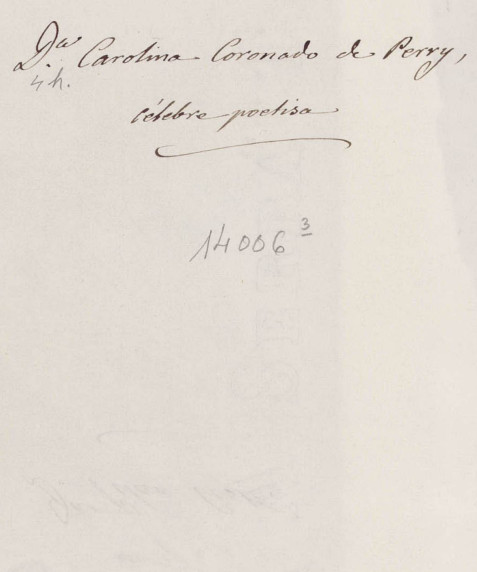 D.ª Carolina Coronado de Perry,
4 h.
célebre poetisa
14006 3